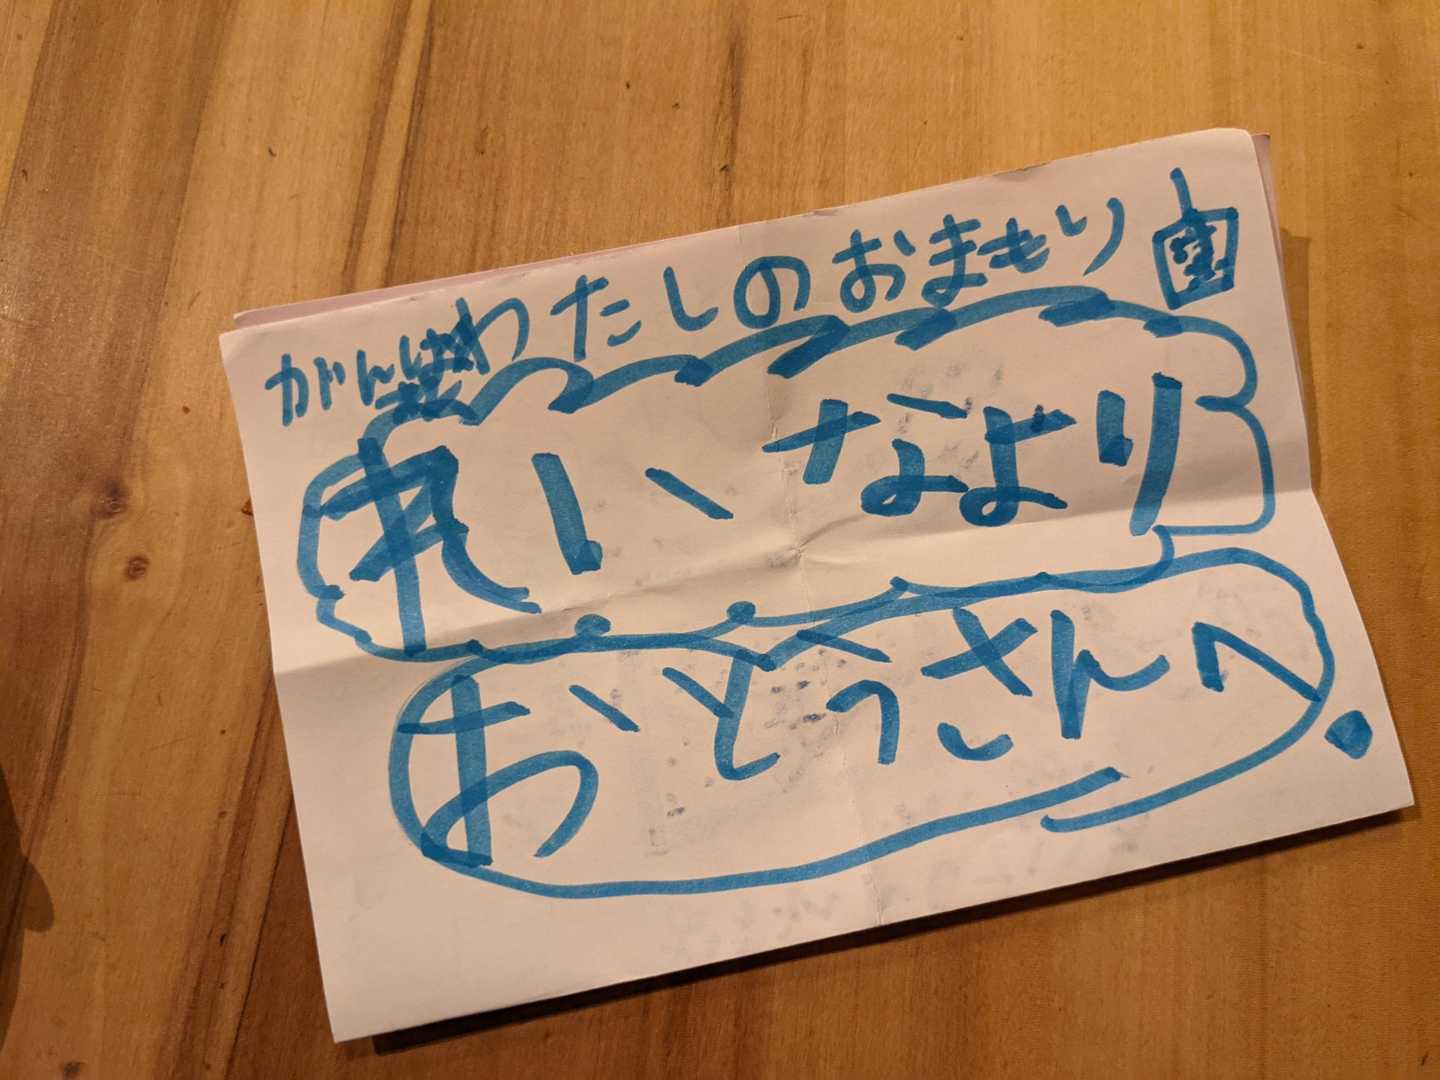 がんば わたしのおまもり
れいなより
おとうさんへ